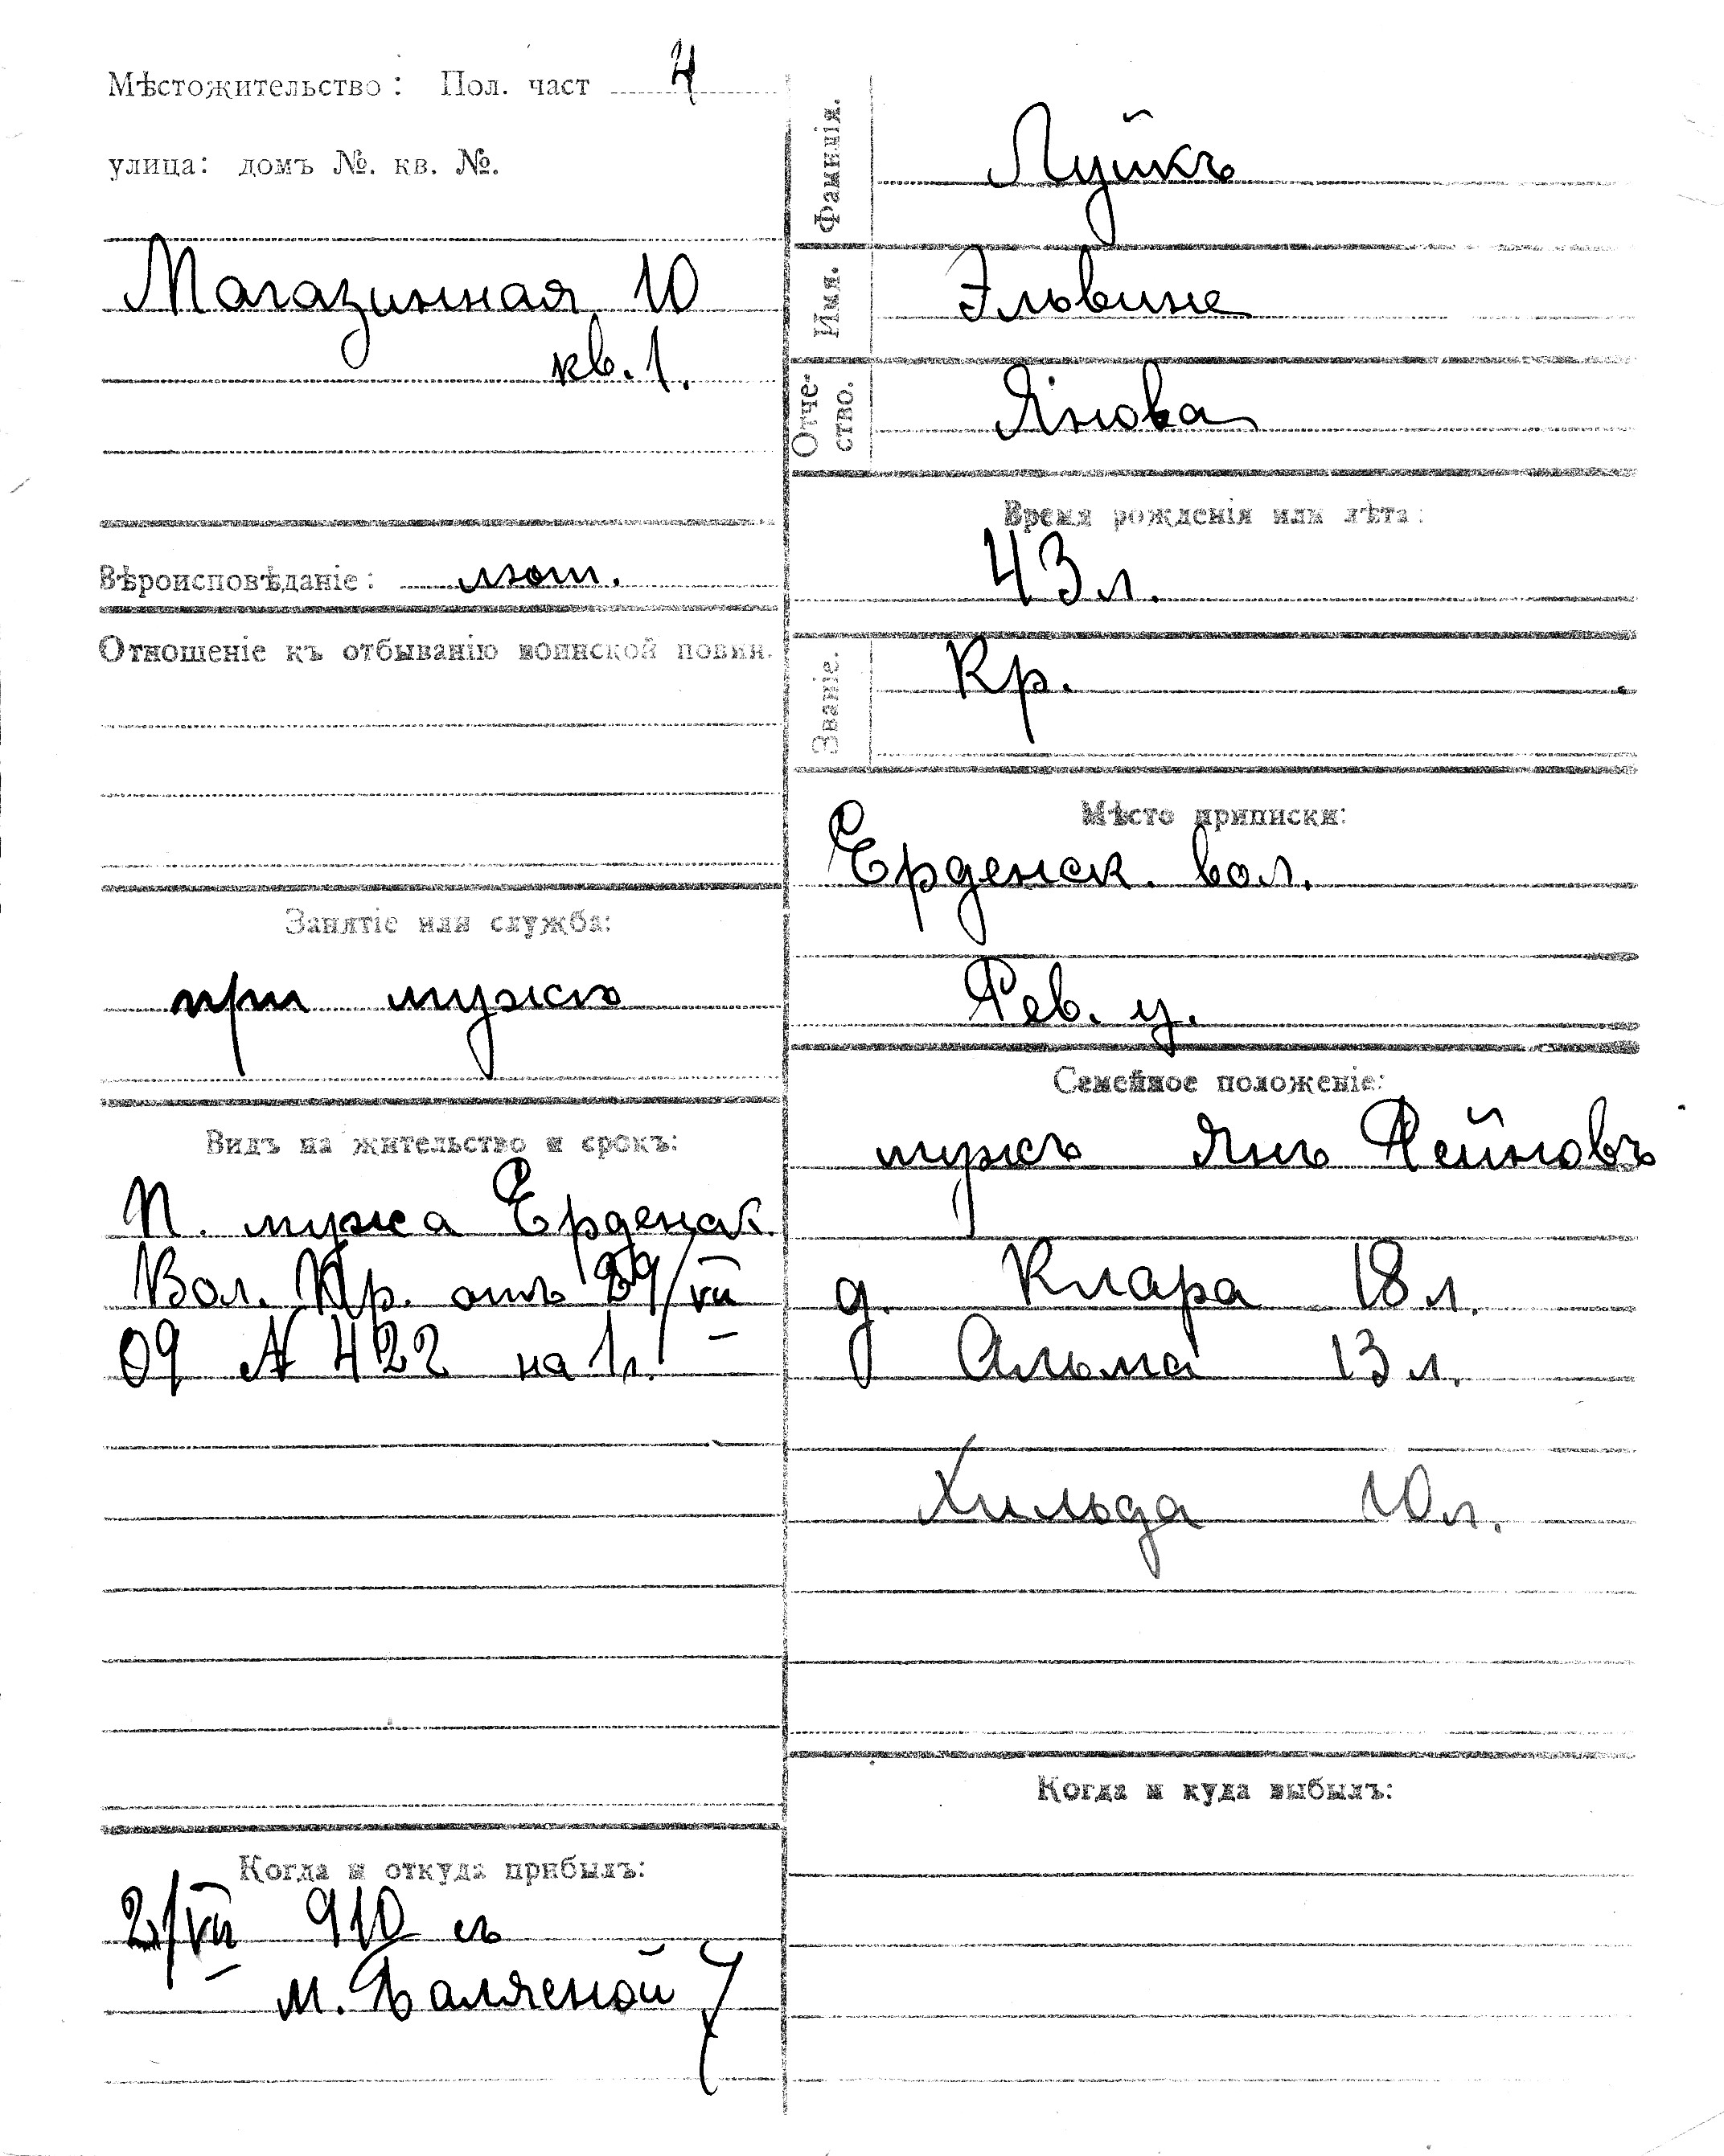 Мѣстожительство: Пол. част 4
улица: домъ №. кв. №.
Магазинная 10
кв. 1.
Вѣроисповѣданіе: лют.
Отношеніе къ отбыванію воинской повин.
Занятіе или служба:
при мужѣ
Видъ на жительство и срокъ:
П. мужа Ерденск.
Вол. Пр. отъ 29/VII
09 № 422 на 1 г.
Когда и откуда прибылъ:
2/VII 910 съ
м. Балясной 7
Фамилія. Луйкъ
Имя. Эльвине
Отче-
ство. Янова
Время рожденія или лѣта:
43 л.
Званіе. Кр.
Мѣсто приписки:
Ерденск. вол.
Рев. у.
Семейное положеніе:
мужъ Янъ Рейновъ
д. Клара 18 л.
д Альма 13 л.
Хильда 10 л.
Когда и куда выбылъ: